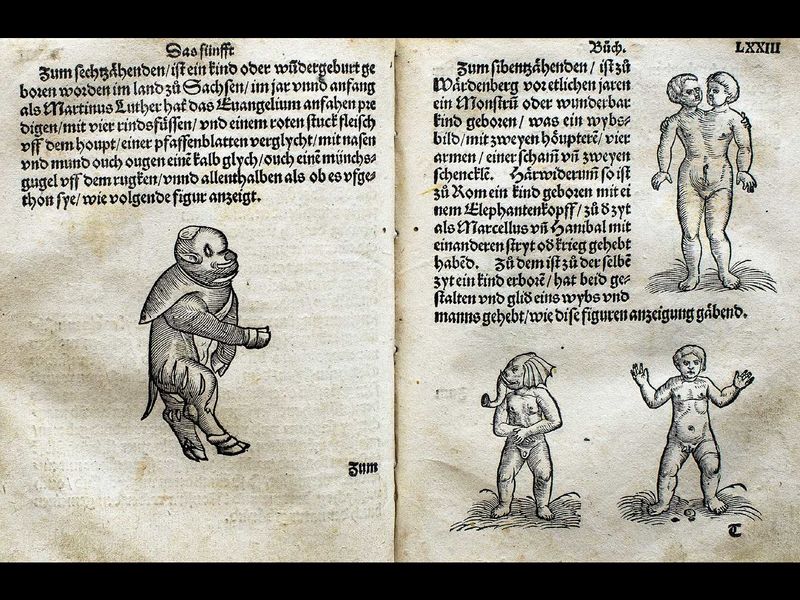 Das fünfft
Zum sechtzähenden/ ist ein kind oder wůdergeburt ge
boren worden im land zů Sachsen/ im jar vnnd anfang
als Martinus Luther hat das Euangelium anfahen pre
digen/ mit vier rindsfüssen/ vnd einem roten stuck fleisch
vff dem houpt/ einer pfaffenblatten verglycht/ mit nasen
vnd mund ouch ougen einē kalb glych/ ouch einē münchs-
gugel vff dem rugken/ vnnd allenthalben als ob es vfge-
thon sye/ wie volgende figur anzeigt.
Zum
Bůch.
LXXIII
Zum sibentzähenden/ ist zů
Wårdenberg vor etlichen jaren
ein Monstrū oder wunderbar
kind geboren/ was ein wybs-
bild/ mit zweyen höupterē/ vier
armen/ einer scham vn̄ zweyen
schencklē. Härwiderum̄ so ist
zů Rom ein kind geboren mit ei
nem Elephantenkopff/ zů d zyt
als Marcellus vn̄ Hanibal mit
einanderen stryt od krieg gehebt
habēd. Zů dem ist zů der selbē
zyt ein kind erborē/ hat beid ge-
stalten vnd glid eins wybs vnd
manns gehebt/ wie dise figuren anzeigung gäbend.
T